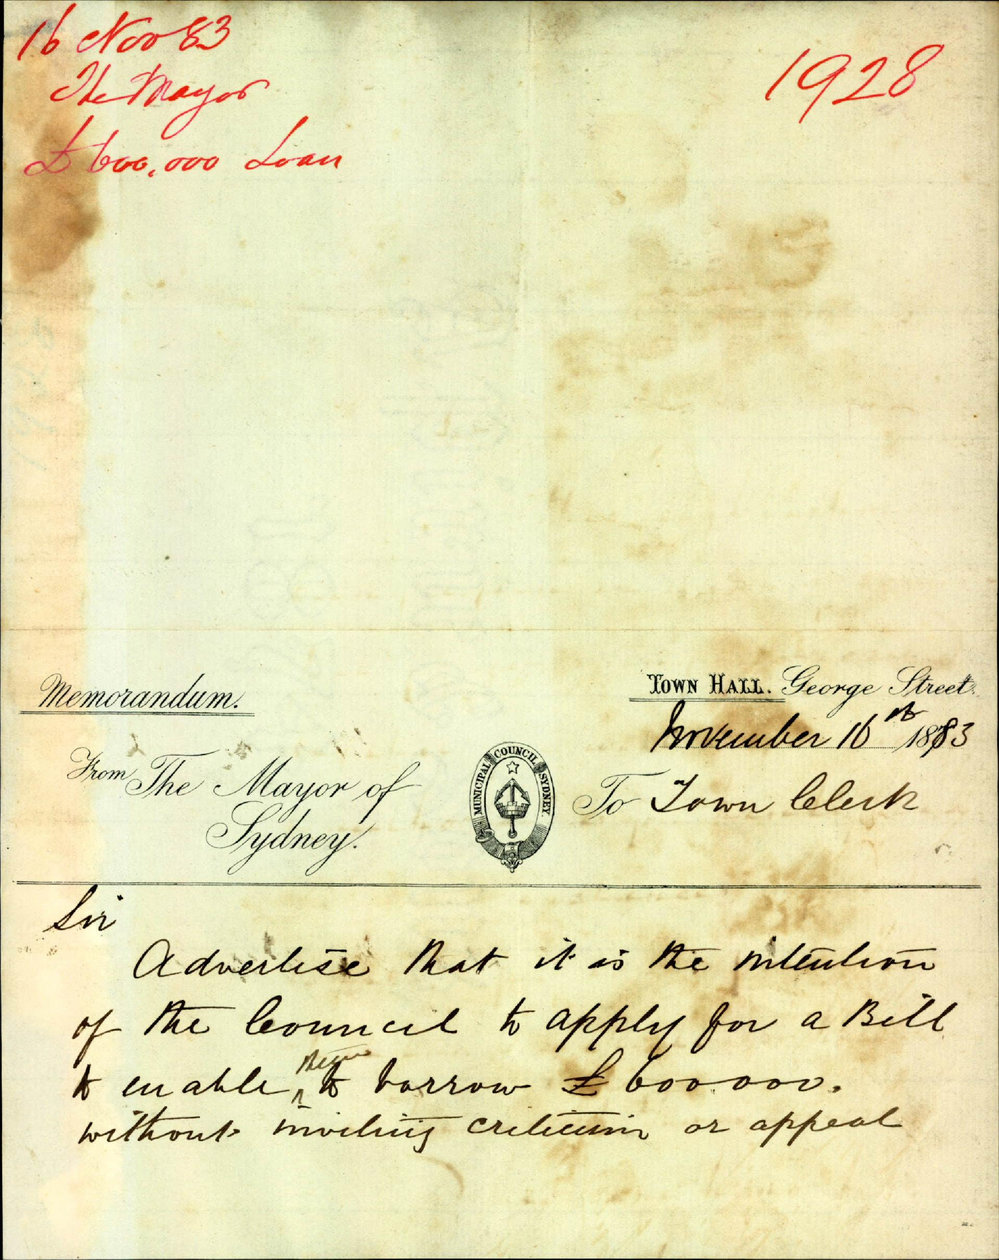 16 Nov 83
The Mayor
£600,000 Loan
1928
Memorandum.
TOWN HALL. George Street.
November 16th 1883
From The Mayor of
Sydney.
MUNICIPAL COUNCIL SYDNEY.
To Town Clerk
Sir
Advertise that it is the intention
of the Council to apply for a Bill
to enable to borrow £600.000.
without inviting criticism or appeal